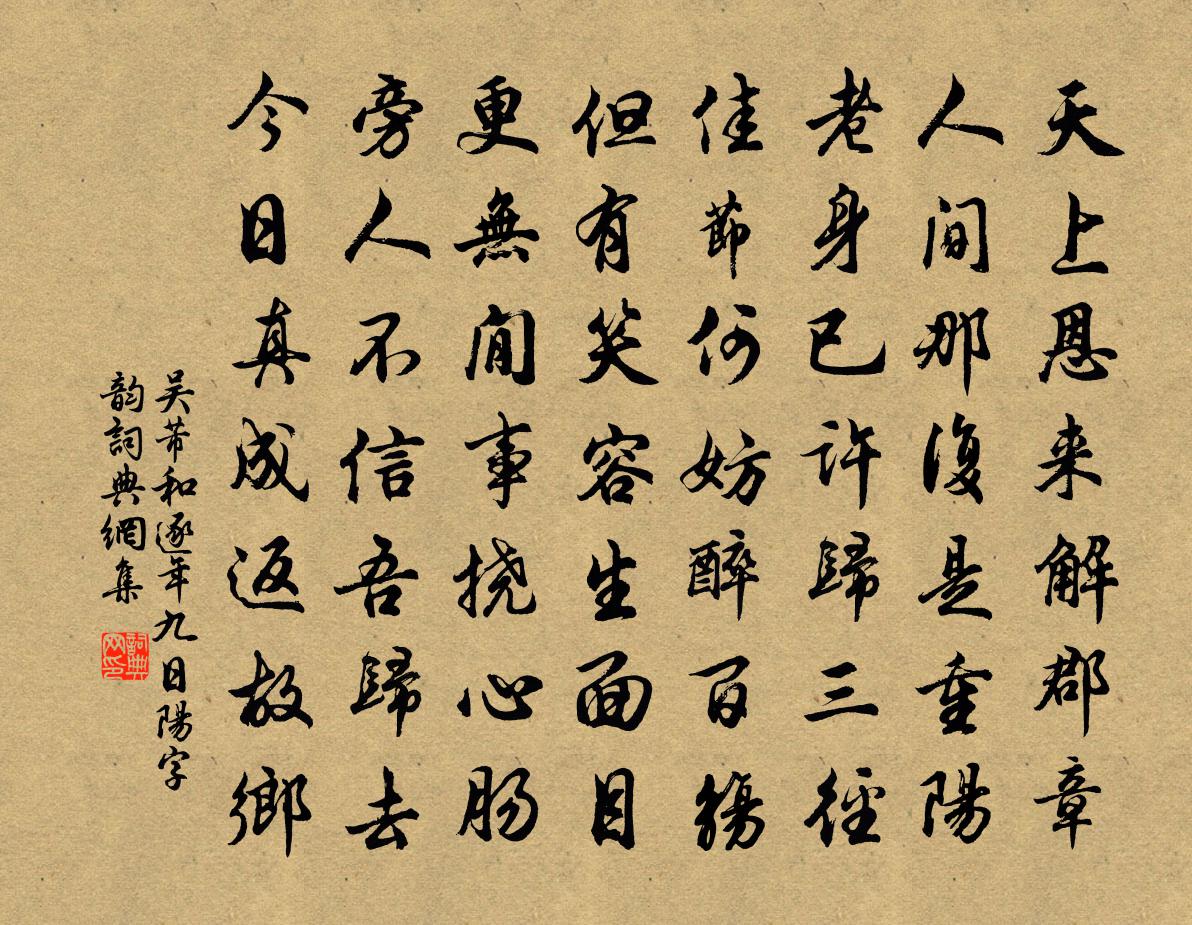 天上恩来解郡章
人間那復是重陽
老身已許歸三徑
佳節何妨醉百觴
但有笑容生面目
更無閒事撓心腸
旁人不信吾歸去
今日真成返故鄉
吴芾和逐年九日陽字
韵詞典網集
詞典网印